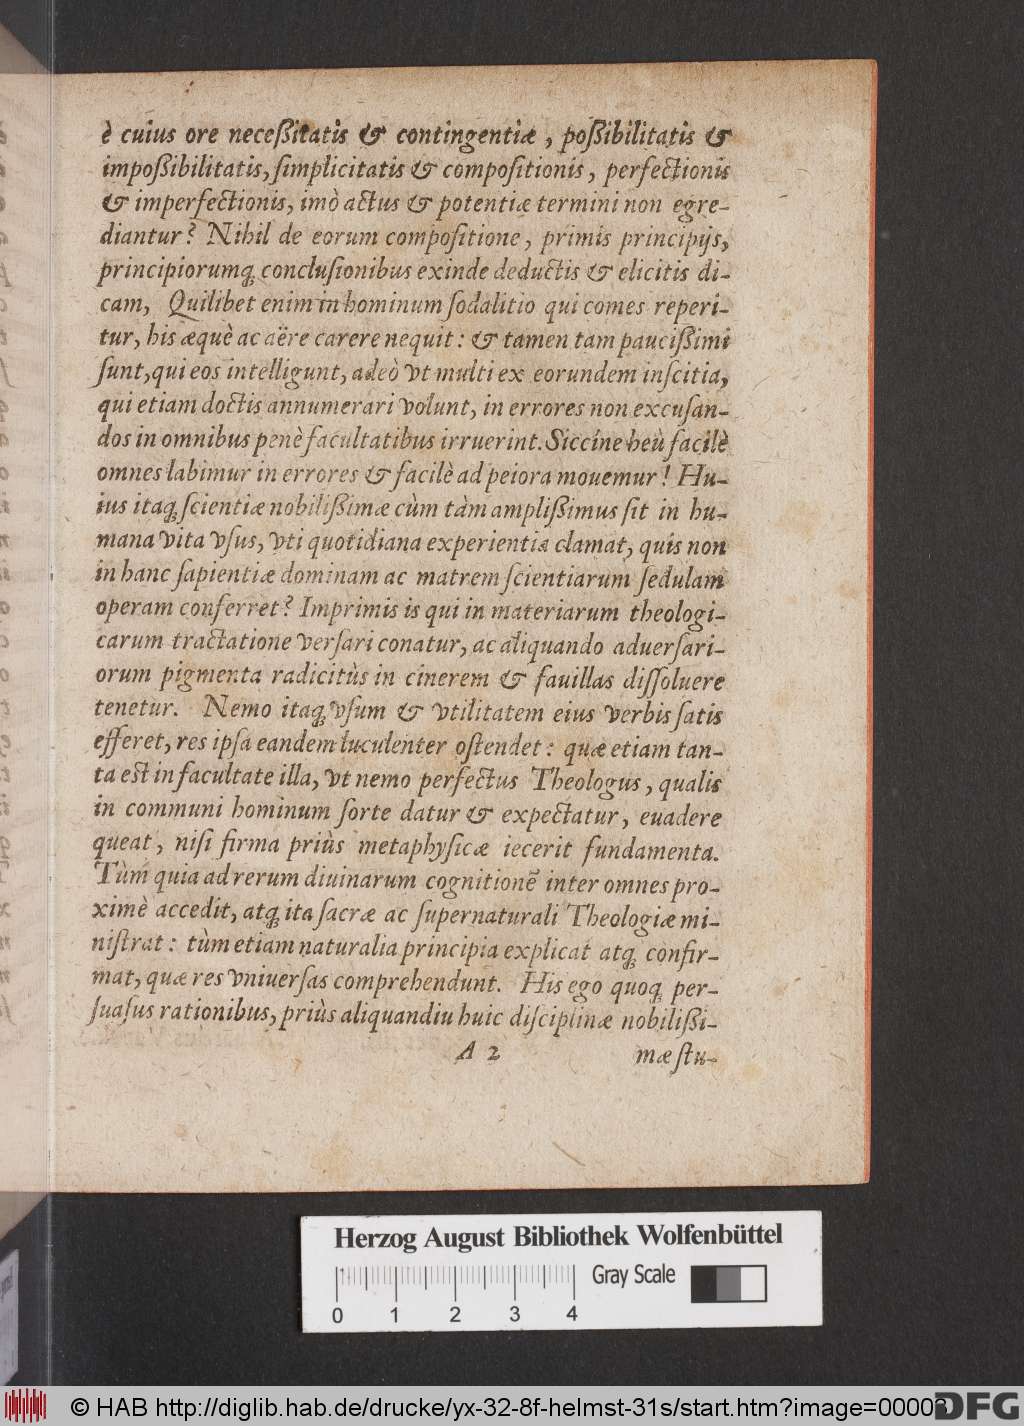 è cuius ore neceßitatis & contingentiæ, poßibilitatis &
impoßibilitatis, ſimplicitatis & compoſitionis, perfectionis
& imperfectionis, imò actus & potentiæ termini non egre-
diantur? Nihil de eorum compoſitione, primis principijs,
principiorumq́ concluſionibus exinde deductis & elicitis di-
cam, Quilibet enim in hominum ſodalitio qui comes reperi-
tur, his æquè ac aëre carere nequit: & tamen tam pauciſſimi
ſunt, qui eos intelligunt, adeò vt multi ex eorundem inſcitia,
qui etiam doctis annumerari volunt, in errores non excuſan-
dos in omnibus penè facultatibus irruerint. Siccine heù facilè
omnes labimur in errores & facilè ad peiora mouemur! Hu-
ius itaq́ ſcientiæ nobilißimæ cùm tàm amplißimus ſit in hu-
mana vita vſus, vti quotidiana experientia clamat, quis non
in hanc ſapientiæ dominam ac matrem ſcientiarum ſedulam
operam conferret? Imprimis is qui in materiarum theologi-
carum tractatione verſari conatur, ac aliquando aduerſari-
orum pigmenta radicitùs in cinerem & fauillas diſſoluere
tenetur. Nemo itaq́ vſum & vtilitatem eius verbis ſatis
efferet, res ipſa eandem luculenter oſtendet: quæ etiam tan-
ta est in facultate illa, vt nemo perfectus Theologus, qualis
in communi hominum ſorte datur & expectatur, euadere
queat, niſi firma priùs metaphyſicæ iecerit fundamenta.
Tùm quia ad rerum diuinarum cognitionẽ inter omnes pro-
ximè accedit, atq́ ita ſacræ ac ſupernaturali Theologiæ mi-
niſtrat: tùm etiam naturalia principia explicat atq́ confir-
mat, quæ res vniuerſas comprehendunt. His ego quoq́ per-
ſuaſus rationibus, priùs aliquandiu huic diſciplinæ nobilißi-
A 2 mæ ſtu-
Herzog August Bibliothek Wolfenbüttel
Gray Scale
0 1 2 3 4
© HAB http://diglib.hab.de/drucke/yx-32-8f-helmst-31s/start.htm?image=00003
DFG